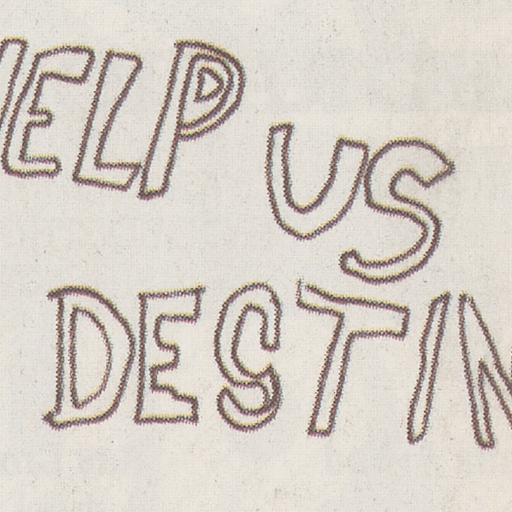 HELP
US
DESTIN